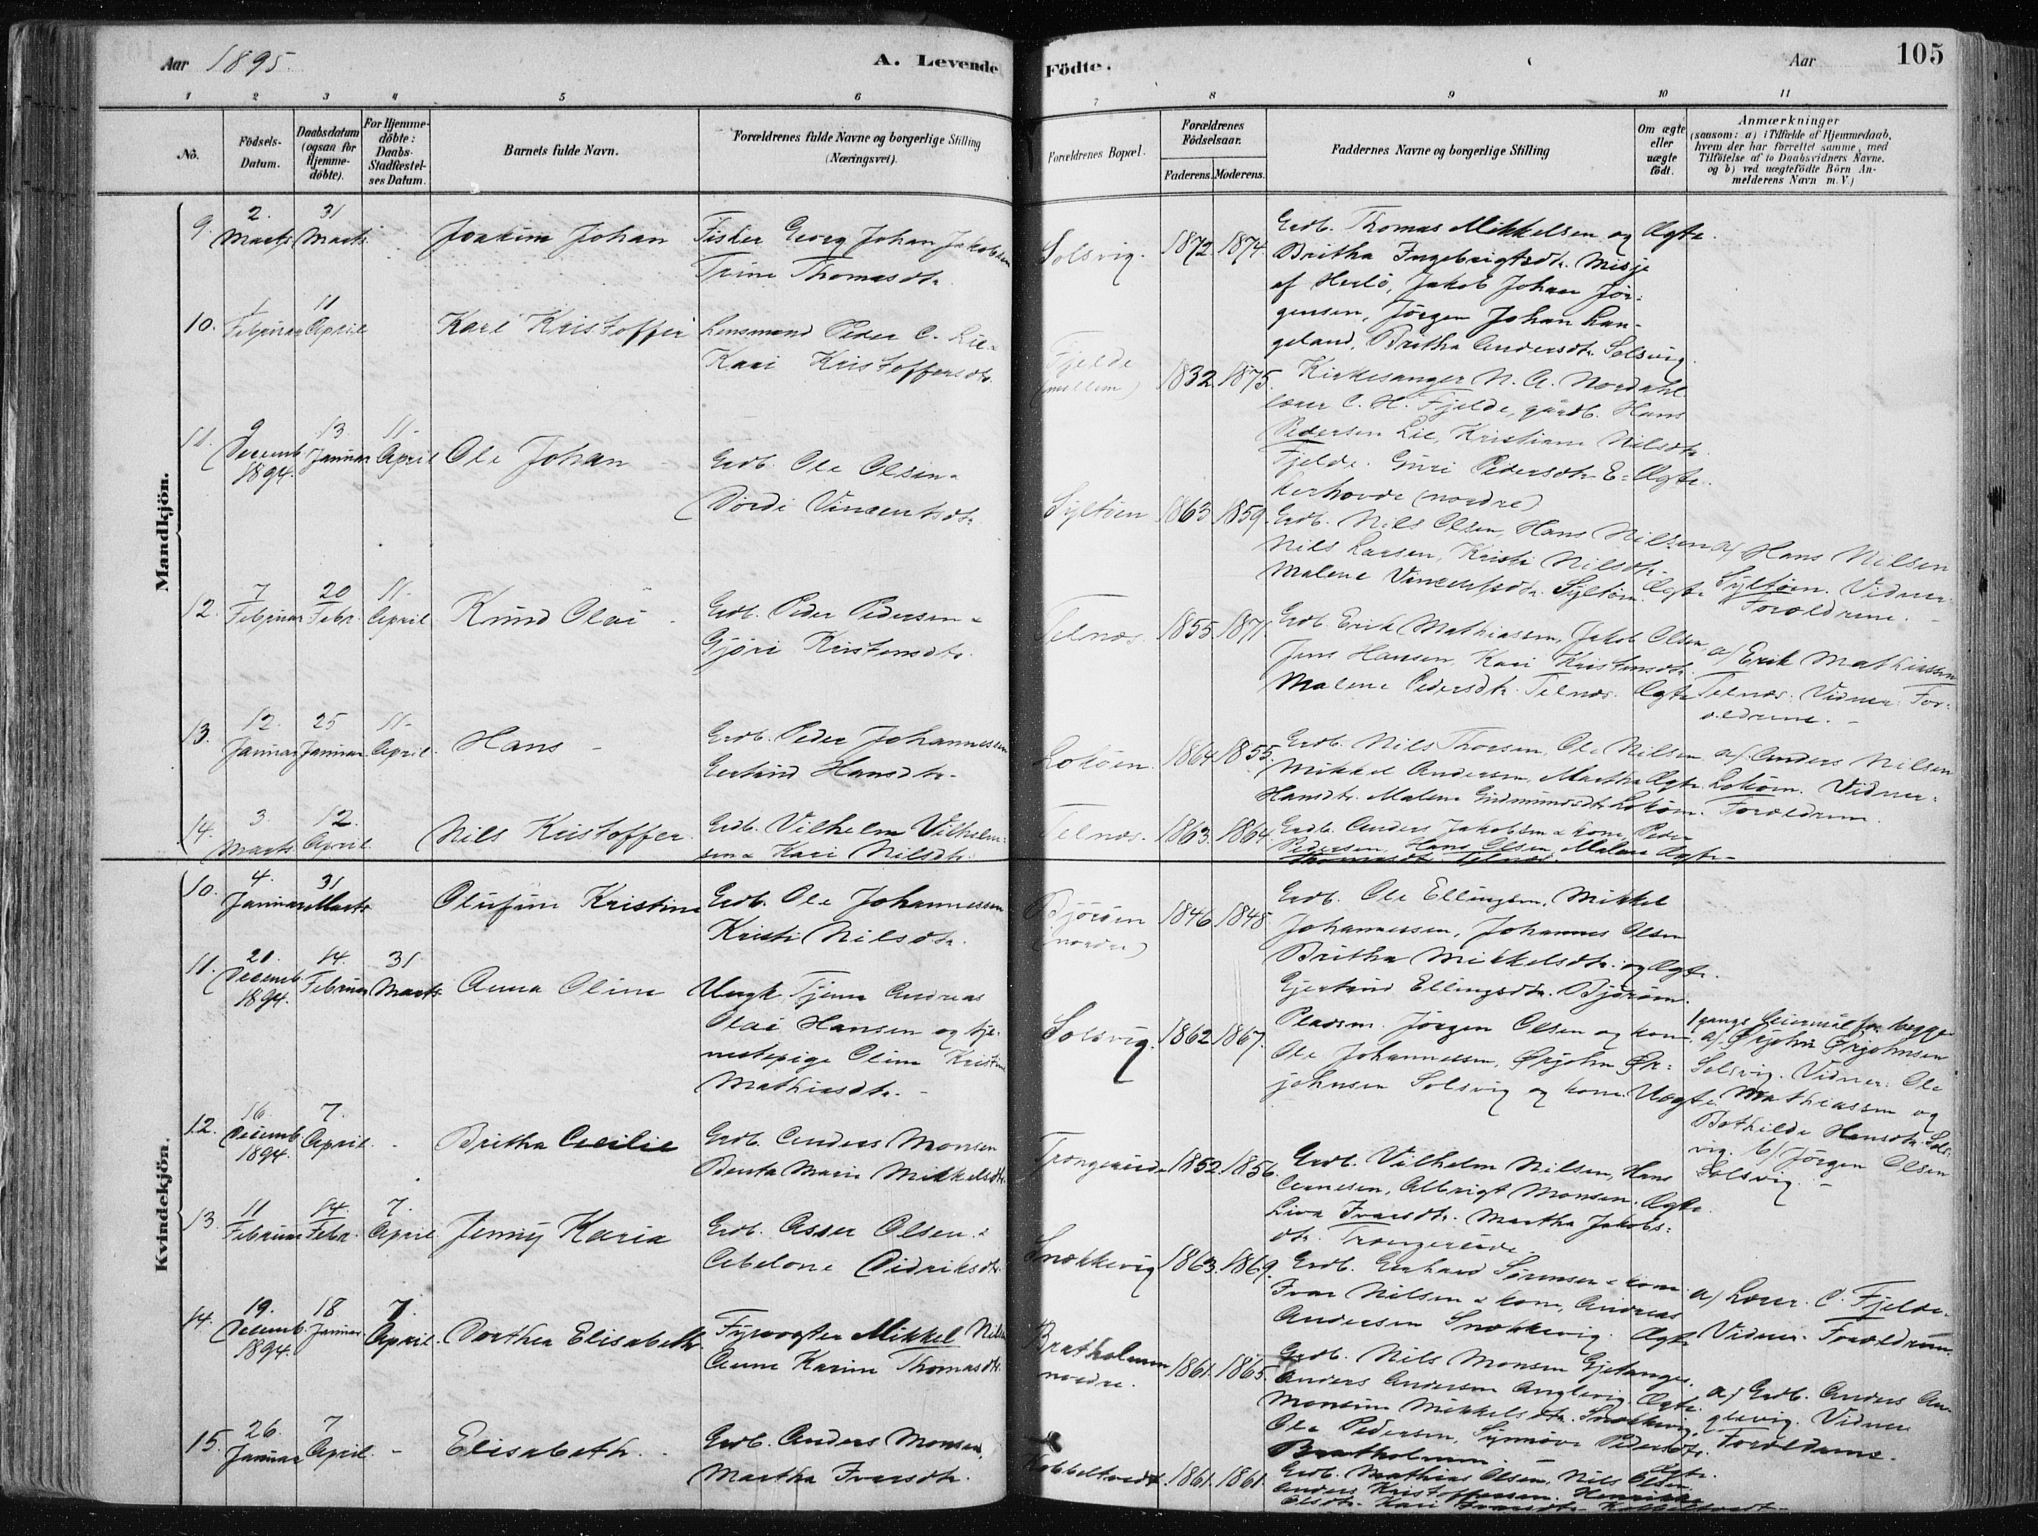 Aar 1895.
A. Levende Födte.
Aar
105
1 2 3 4 5 6 7 8 9 10 11
No.
Födsels-Datum.
Daabsdatum (ogsaa for Hjemme-döbte).
For Hjemme-döbte: Daabs-Stadfæstel-ses Datum.
Barnets fulde Navn.
Forældrenes fulde Navne og borgerlige Stilling (Næringsvei).
Forældrenes Bopæl.
Forældrenes Födselsaar.
Faderens. Moderens.
Faddernes Navne og borgerlige Stilling
Om ægte eller uægte födt.
Anmærkninger
(saasom: a) i Tilfælde af Hjemmedaab,
hvem der har forrettet samme, med
Tilföielse af to Daabsvidners Navne.
og b) ved uægtefödte Börn An-
melderens Navn m. V.)
Mandkjön.
9. 2. Marts 31 Marts
Joakim Johan
Fisker Georg Johan Jakobsen
Trine Thomasdtr.
Solsvig. 1872. 1874.
Grdb. Thomas Mikkelsen og Ægte.
Britha Ingebrigtsdtr. Misje
af Herlö, Jakob Johan Jör-
gensen, Jörgen Johan Lan-
geland, Britha Andersdtr. Solsvig.
10. Februar 11 April
Karl Kristoffer
Lensmand Peder C. Lie
Kari Kristoffersdtr.
Fjelde (mellem) 1832. 1875.
Kirkesanger N. A. Nordahl
lærer C. H. Fjelde, gårdb. Hans
Pedersen Lie, Kristiane Nilsdtr.
Fjelde. Guri Pedersdtr. E- Ægte.
kerhovde (nordre)
11. 9 Decemb. 1894. 13 Januar 11. April
Ole Johan
Grdb. Ole Olsen
Dordi Vincentsdtr.
Syltöen 1863. 1859.
Grdb. Nils Olsen, Hans Nilsen
Nils Larsen, Kristi Nilsdtr.
Malene Vincentsdtr. Syltöen. Ægte
a/ Hans Nilsen
Syltöen. Vidner:
Forældrene.
12. 7 Februar 20 Febr. 11. April
Knud Olai
Grdb. Peder Pedersen
Gjöri Kristensdtr.
Telnæs. 1855. 1871.
Grdb. Erik Mathiassen, Jakob Olsen
Jens Hansen, Kari Kristensdtr.
Malene Pedersdtr. Telnæs. Ægte
a/ Erik Mathiassen
Telnæs. Vidner: For-
ældrene.
13. 12. Januar 25 Januar 11. April.
Hans
Grdb. Peder Johannessen
Gertrud Hansdtr.
Loköen. 1864. 1855.
Grdb. Nils Thorsen, Ole Nilsen
Mikkel Andersen, Martha Ægte
Hansdtr. Malene Gudmundsdtr. Loköen.
a/ Anders Nilsen
Loköen. Vidner:
Forældrene.
14. 3 Marts 12. April.
Nils Kristoffer
Grdb. Vilhelm Vilhelm-
sen & Kari Nilsdtr.
Telnæs. 1863. 1864.
Grdb. Anders Jakobsen & kone, Peder
Pedersen, Hans Olsen, Malene Ægte
Thomasdtr. Telnæs.
Kvindekjön.
10. 4. Januar 31 Marts
Olufine Kristine
Grdb. Ole Johannessen
Kristi Nilsdtr.
Björöen (nordre) 1846. 1848.
Grdb. Ole Ellingsen, Mikkel
Johannessen, Johannes Olsen
Britha Mikkelsdtr. og Ægte.
Gjertrud Ellingsdtr. Björöen.
11. 20. Decemb. 1894. 14. Februar 31 Marts
Anna Oline
Ungk. Tjener Andreas
Olai Hansen og tje-
nestepige Oline Kristine
Mathiasdtr.
Solsvig. 1862. 1867.
Pladsm. Jörgen Olsen og kone,
Ole Johannessen, Ørjohn Ør-
johnsen Solsvig og kone. Uægte
1 gangs leiermål for begge
a/ Ørjohn Ørjohnsen
Solsvig. Vidner: Ole
Mathiassen og
Bothilde Hansdtr. Sols-
vig. b/ Jörgen Olsen
Solsvig.
12. 16. Decemb. 1894. 7. April.
Britha Cecilie
Grdb. Anders Monsen
Benta Marie Mikkelsdtr.
1852. 1856.
Grdb. Vilhelm Nilsen, Hans
Arnesen, Albrigt Monsen. Ægte.
Liva Ivarsdtr. Martha Jakobs-
dtr.
13. 11 Februar 14. Febr. 7. April
Jenny Karia
Grdb. Asser Olsen &
Abelone Didriksdtr.
Snekkevig 1863. 1869.
Grdb. Gerhard Sörensen & kone
Ivar Nilsen & kone, Andreas
Andersen Snekkevig. Ægte
a/ Lærer C. Fjelde.
Vidner: Forældrene.
14. 19. Decemb. 1894. 18 Januar 7. April.
Dorthea Elisabeth
Fyrvogter Mikkel Nilsen
Anne Karine Thomasdtr.
Bratholmen nordre. 1861. 1865.
Grdb. Nils Monsen Gjetanger.
Anders Andersen Anglevig Ægte.
Monsine Mikkelsdtr. Snekkevig
Ole Pedersen, Synnöve Pedersdtr.
Bratholmen.
a/ Grdb. Anders An-
glevig. Vidner
Forældrene.
15. 26. Januar 7. April.
Elisabeth.
Grdb. Anders Monsen,
Martha Ivarsdtr.
Kobbeltvedt. 1861. 1861.
Ægte.
Grdb. Mathias Olsen, Nils Olsen
Anders Kristoffersen. Henrikke
Olsdtr. Kari Ivarsdtr. Kobbeltvedt